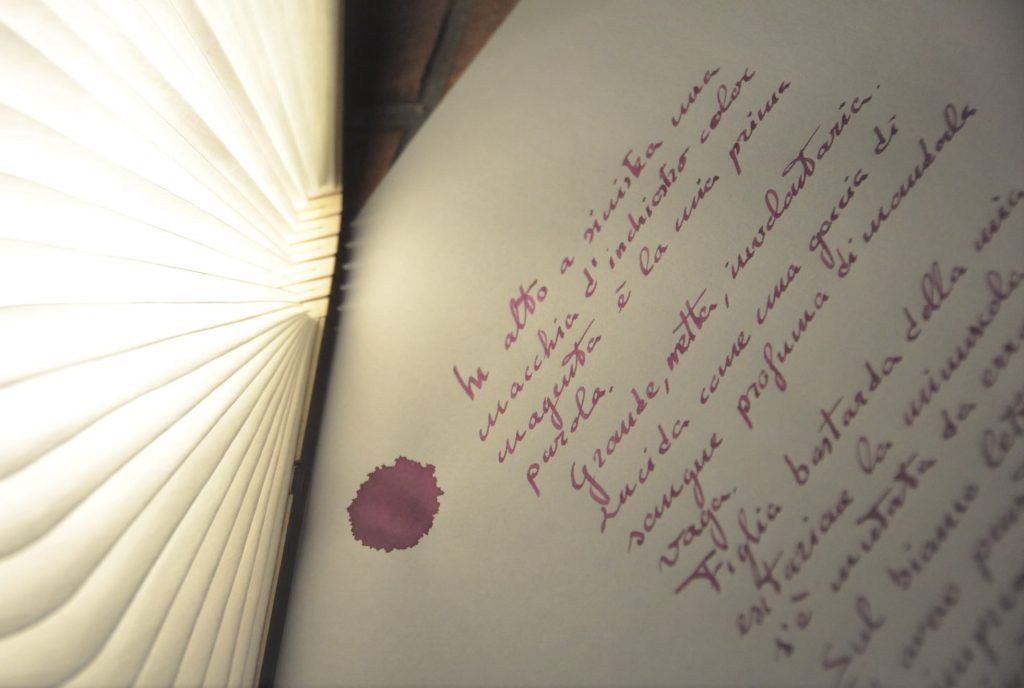 In alto a sinistra una
macchia d'inchiostro color
magenta è la mia prima
parola.
Grande, netta, involontaria.
Lucida come una goccia di
sangue profuma di mandorla
vaga.
Figlia bastarda della mia
esitazione la minuscola
s'è mutata da erro
Sul bianco
avrò